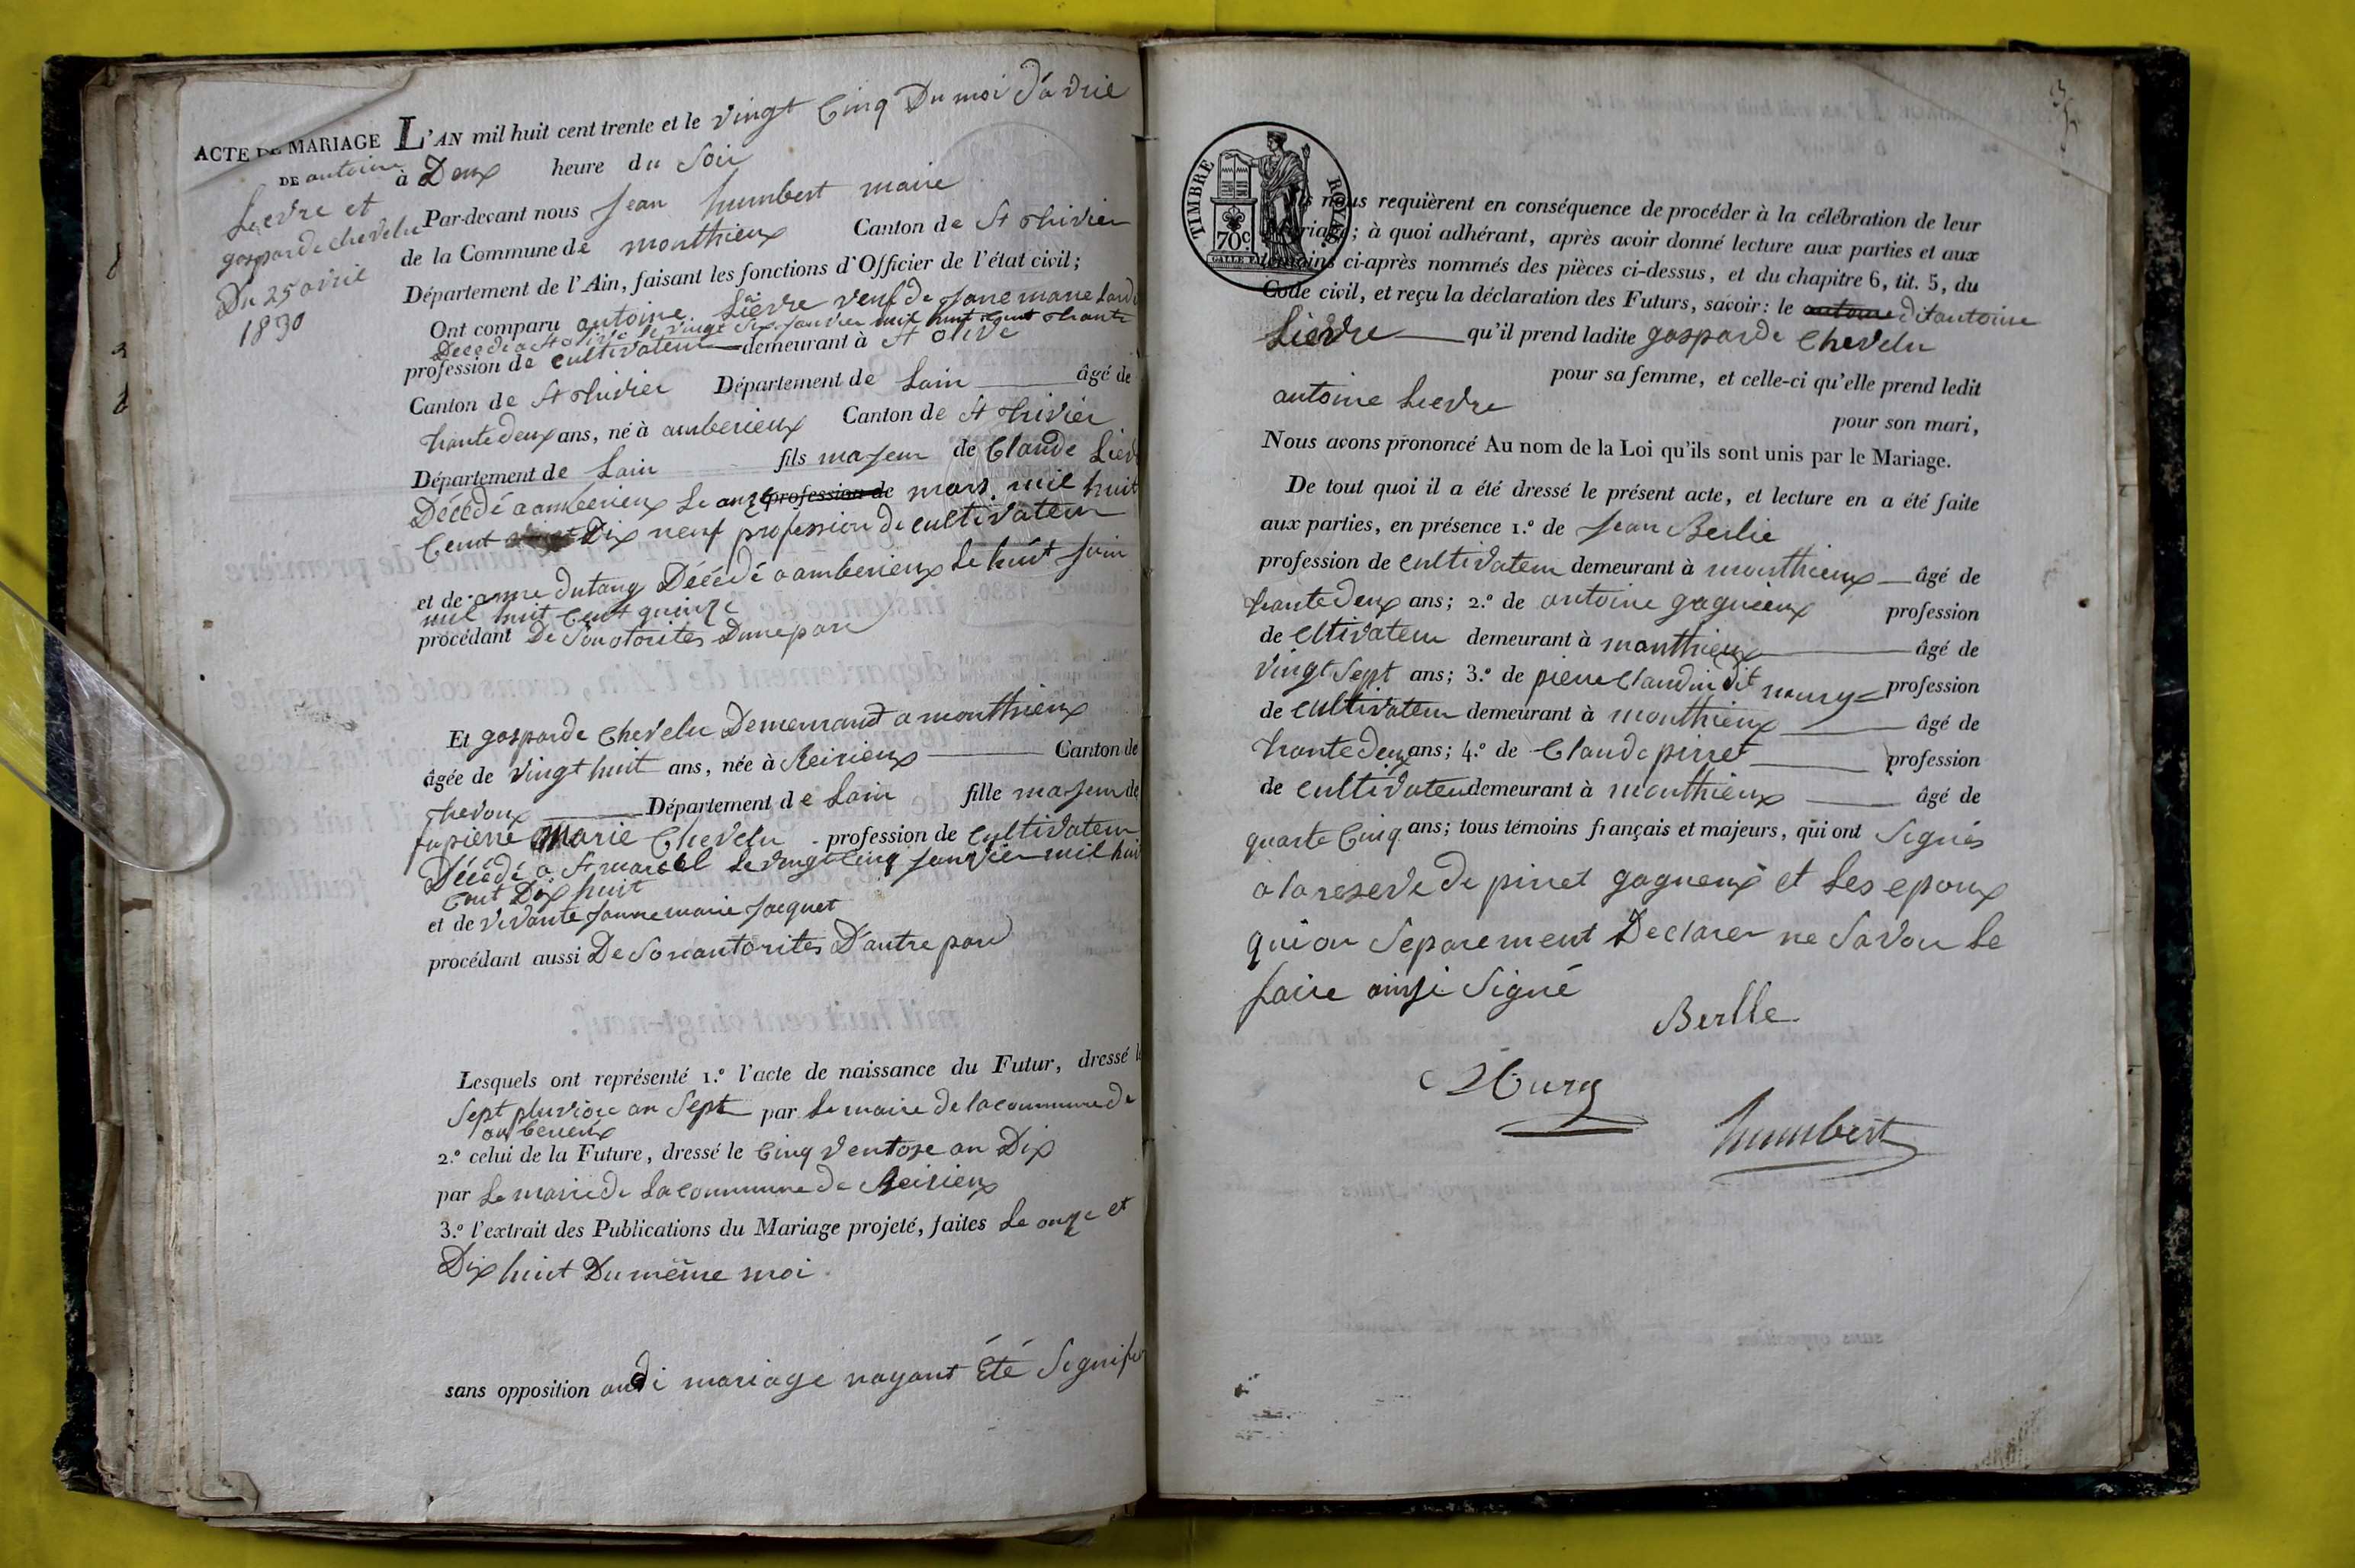 ACTE DE MARIAGE
DE antoine
Lievre et
gasparde chevelu
Du 25 avril
1830
L'AN mil huit cent trente et le vingt Cinq Du moi d'avril
à Deux heure du Soir
Par-devant nous Jean humbert maire
de la Commune de monthieux Canton de St thivier
Département de l'Ain, faisant les fonctions d'Officier de l'état civil;
Ont comparu antoine Lievre veuf de Janne marie
Décédé a St olive le vingt Six Janvier mil huit Cent trante
profession de cultivateur demeurant à St olive
Canton de St thivier Département de Lain âgé de
trante deux ans, né à amberieux Canton de St trivier
Département de Lain fils majeur de Claude Lievr
Décédé a amberieux Le onze profession de mars mil huit
Cent Dix neuf profession de cultivateur
et de anne dutang Décédé a amberieux Le huit Juin
mil huit Cent quinze
procédant De Son otorites Dune part
Et gasparde Chevelu Demeurant a monthieux
âgée de vingt huit ans, née à Reirieux Canton de
trevoux Département de Lain fille majeur de
fu pierre Marie Chevelu profession de Cultivateur
Décédé a St marcel Le vingt Cinq Janvier mil hui
Cent Dix huit
et de vivante Janne marie Jacquet
procédant aussi De Son autorites D'autre part
Lesquels ont représenté 1.º l'acte de naissance du Futur, dressé le
Sept pluviose an Sept par Le maire de la commune de
amberieux
2.º celui de la Future, dressé le Cinq ventose an Dix
par Le maire de La commune de Reirieux
3.º l'extrait des Publications du Mariage projeté, faites Le onze et
Dix huit Du même moi
sans opposition audi mariage nayant Été Signifi
TIMBRE ROYAL
70 c.
nous requièrent en conséquence de procéder à la célébration de leur
Mariage; à quoi adhérant, après avoir donné lecture aux parties et aux
témoins ci-après nommés des pièces ci-dessus, et du chapitre 6, tit. 5, du
Code civil, et reçu la déclaration des Futurs, savoir: le antoine dit antoine
Lievre qu'il prend ladite gasparde Chevelu
pour sa femme, et celle-ci qu'elle prend ledit
antoine Lievre
pour son mari,
Nous avons prononcé Au nom de la Loi qu'ils sont unis par le Mariage.
De tout quoi il a été dressé le présent acte, et lecture en a été faite
aux parties, en présence 1.º de Jean Berlie
profession de cultivateur demeurant à monthieux âgé de
trante deux ans; 2.º de antoine gagnieux profession
de cltivateur demeurant à monthieux âgé de
vingt Sept ans; 3.º de pierre Claudin dit noury profession
de cultivateur demeurant à monthieux âgé de
trante deux ans; 4.º de Claude pirret profession
de cultivateur demeurant à monthieux âgé de
quarte Cinq ans; tous témoins français et majeurs, qui ont Signés
a la reserve de pirret gagneux et Les epoux
qui on Separement Declarer ne Savoir Le
faire ainsi Signé
Berlle
humbert